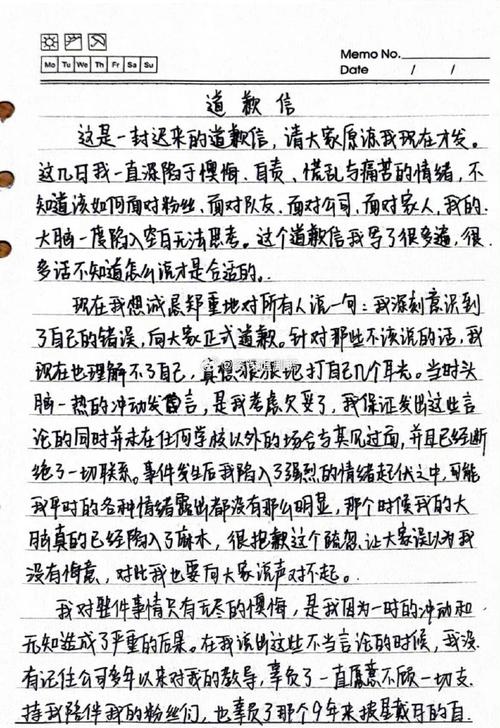 Memo No.
Mo Tu We Th Fr Sa Su
Date / /
道歉信
这是一封迟来的道歉信，请大家原谅我现在才发。
这几日我一直深陷于懊悔、自责、慌乱与痛苦的情绪，不
知道该如何面对粉丝、面对队友、面对公司、面对家人，我的
大脑一度陷入空白无法思考。这个道歉信我写了很多遍，很
多话不知道怎么说才是合适的。
现在我想诚恳郑重地对所有人说一句：我深刻意识到
了自己的错误，向大家正式道歉。针对那些不该说的话，我
现在也理解不了自己，真想狠狠地打自己几个耳光。当时头
脑一热的冲动发言，是我考虑欠妥了，我保证发出这些言
论的同时并未在任何学校以外的场合与其见过面，并且已经断
绝了一切联系。事件发生后我陷入了强烈的情绪起伏之中，可能
我平时的各种情绪露出都没有那么明显，那个时候我的大
脑真的已经陷入了麻木，很抱歉这个疏忽让大家误以为我
没有悔意，对此我也要向大家说声对不起。
我对整件事情只有无尽的懊悔，是我因为一时的冲动和
无知造成了严重的后果。在我说出这些不当言论的时候，我没
有记住公司多年以来对我的教导，辜负了一直愿意不顾一切支
持我陪伴我的粉丝们，也辜负了那个9年来披星戴月的自